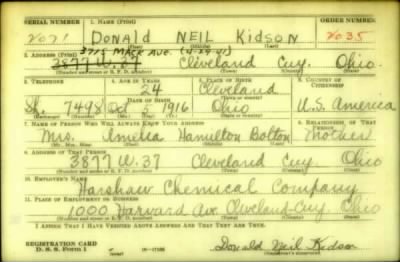 SERIAL NUMBER 1. NAME (Print) ORDER NUMBER
Donald NEIL Kidson
(First) (Middle) (Last)
2. ADDRESS (Print)
3877 W. 37 Cleveland Cuy. Ohio.
(Number and street or R. F. D. number) (Town) (County) (State)
3. TELEPHONE 4. AGE IN YEARS 5. PLACE OF BIRTH 6. COUNTRY OF CITIZENSHIP
24 Cleveland
Sh. 7498 DATE OF BIRTH Oct 5 1916 Ohio U.S. America
7. NAME OF PERSON WHO WILL ALWAYS KNOW YOUR ADDRESS 8. RELATIONSHIP OF THAT PERSON
Mrs. Amelia Hamilton Bolton Mother
(Mr., Mrs., Miss) (First) (Middle) (Last)
9. ADDRESS OF THAT PERSON
3877 W. 37 Cleveland Cuy. Ohio
(Number and street or R. F. D. number) (Town) (County) (State)
10. EMPLOYER'S NAME
Harshaw Chemical Company
11. PLACE OF EMPLOYMENT OR BUSINESS
1000 Harvard Ave Cleveland-Cuy. Ohio
(Number and street or R. F. D. number) (Town) (County) (State)
I AFFIRM THAT I HAVE VERIFIED ABOVE ANSWERS AND THAT THEY ARE TRUE.
REGISTRATION CARD
D. S. S. Form 1 Donald Neil Kidson